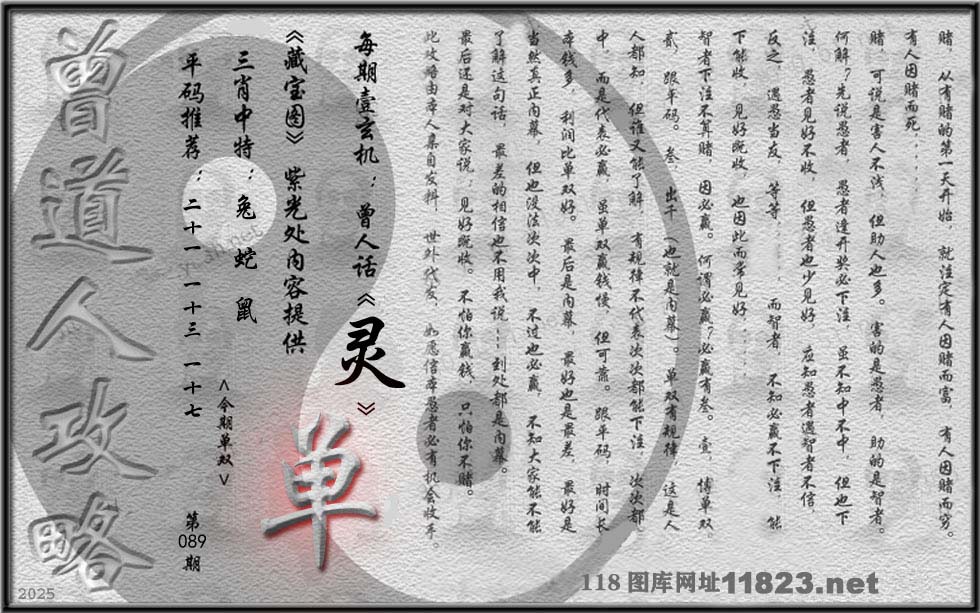 赌，从有赌的第一天开始，就注定有人因赌而富，有人因赌而穷。
有人因赌而死......
赌，可说是害人不浅，但助人也多。害的是愚者，助的是智者。
何解？先说愚者，愚者逢开奖必下注，虽不知中不中，但也下
注，愚者见好不收，但愚者也少见好，应知愚者遇智者不信，
反之，遇愁当友，等等......而智者，不知必赢不下注，能
下能收，见好既收，也因此而常见好......
智者下注不算赌，因必赢。何谓必赢？必赢有叁。壹，博单双，
贰，跟平码。叁，出千（也就是内幕）。单双有规律，这是人
人都知，但谁又能了解，有规律不代表次次都能下注，次次都
中，而是代表必赢，虽单双赢钱慢，但可靠。跟平码，时间长
本钱多，利润比单双好。最后是内幕，最好也是最差，最好是
当然真正内幕，但也没法次次中，不过也必赢，不知大家能不能
了解这句话，最差的相信也不用我说---到处都是内幕。
最后还是对大家说：见好既收。不怕你赢钱，只怕你不赌。
此攻略由本人集自发料，世外代友，如愿信本愚者必有机会收手。
每期壹玄机：曾人话《灵》
《藏宝图》紫光处内容提供
单
三肖中特：兔 蛇 鼠
<今期单双>
平码推荐：二十一 一十三 一十七
第089期
曾道人攻略
2025
118图库网址11823.net